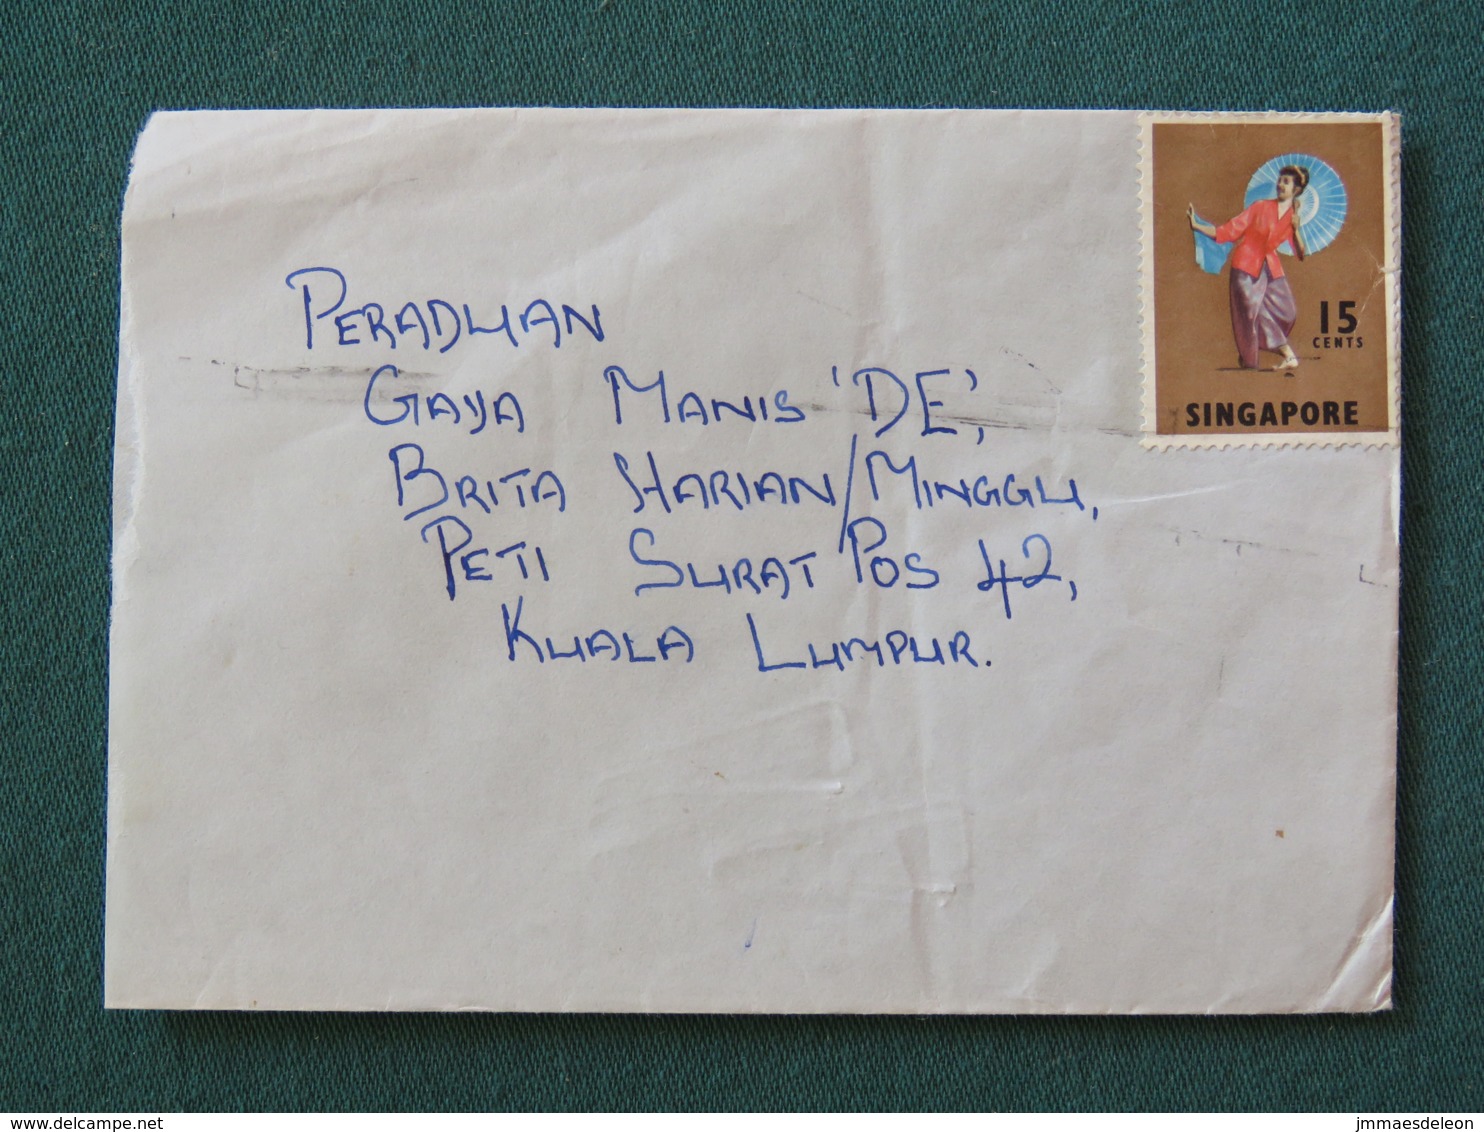 PERADUAN
GAYA MANIS 'DE',
BRITA HARIAN/MINGGU,
PETI SURAT POS 42,
KUALA LUMPUR.
15
CENTS
SINGAPORE
delcampe.net
jmmaesdeleon